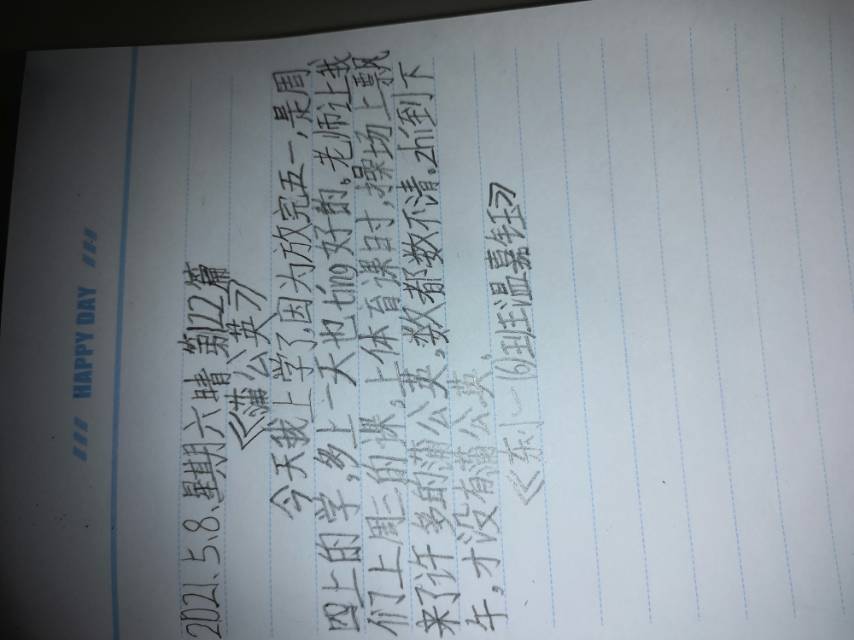 /// HAPPY DAY ///
2021.5.8.星期六晴 第122篇
《蒲公英》
今天我上学了,因为放完五一,是周
四上的学,多上一天也tíng好的。老师让我
们上周三的课,上体育课时,操场上飘
来了许多的蒲公英,数都数不清。zhí到下
午,才没有蒲公英。
《东小一(6)班温嘉钰》